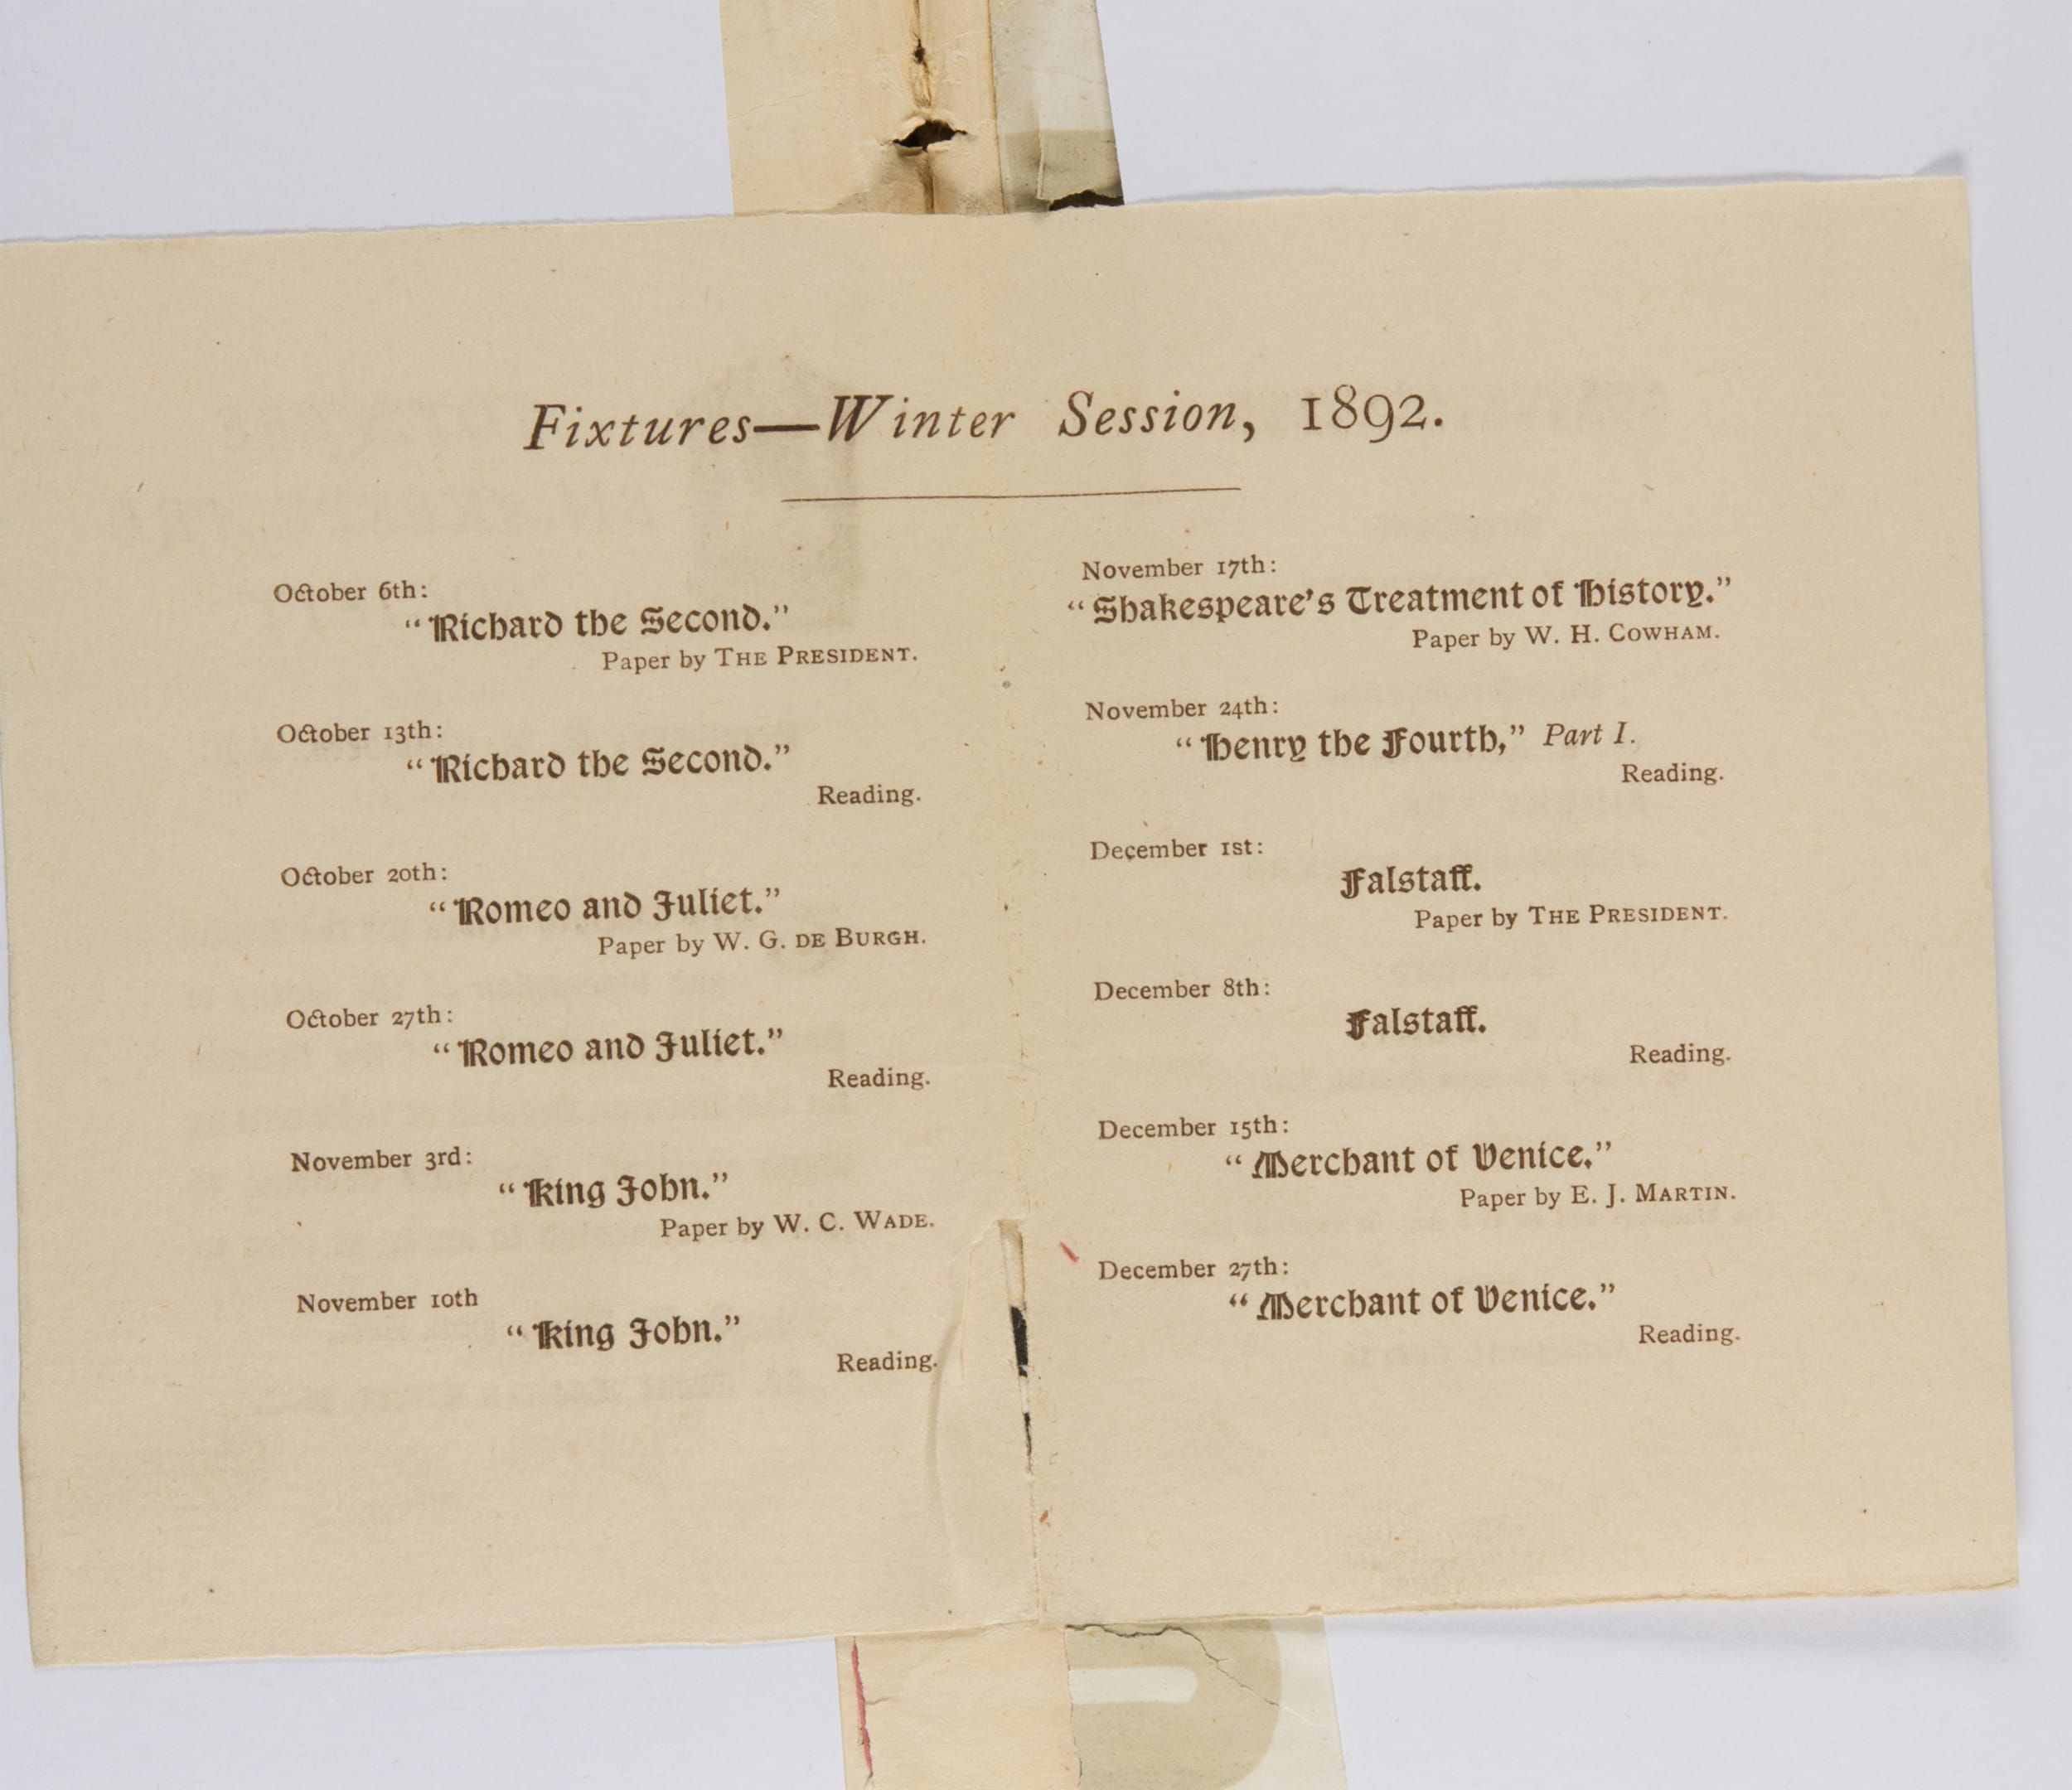 Fixtures—Winter Session, 1892.
October 6th:
“Richard the Second.”
Paper by THE PRESIDENT.
October 13th:
“Richard the Second.”
Reading.
October 20th:
“Romeo and Juliet.”
Paper by W. G. DE BURGH.
October 27th:
“Romeo and Juliet.”
Reading.
November 3rd:
“King John.”
Paper by W. C. WADE.
November 10th
“King John.”
Reading.
November 17th:
“Shakespeare’s Treatment of History.”
Paper by W. H. COWHAM.
November 24th:
“Henry the Fourth,” Part I.
Reading.
December 1st:
Falstaff.
Paper by THE PRESIDENT.
December 8th:
Falstaff.
Reading.
December 15th:
“Merchant of Venice.”
Paper by E. J. MARTIN.
December 27th:
“Merchant of Venice.”
Reading.